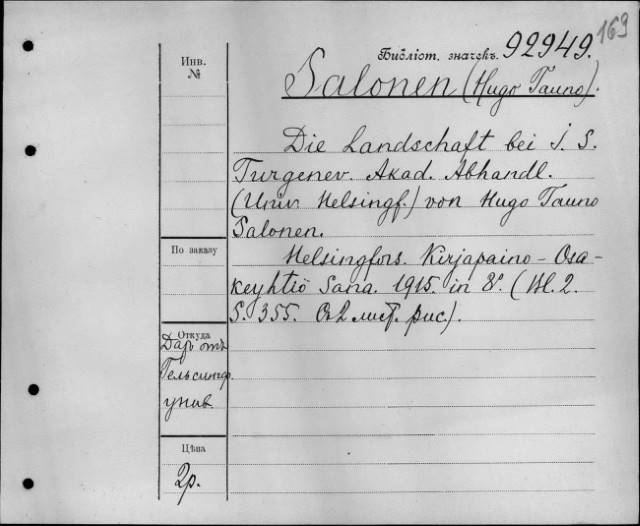 169
Библіот. значекъ. 92949.
Инв.
№
Salonen (Hugo Tauno).
Die Landschaft bei I. S.
Turgenev. Akad. Abhandl.
(Univ. Helsingf.) von Hugo Tauno
Salonen.
По заказу
Helsingfors. Kirjapaino-Osa-
keyhtiö Sana. 1915. in 8°. (Bl. 2.
S. 355. Съ 2 лист. рис.).
Откуда
Даръ отъ
Гельсингф.
унив.
Цѣна
2р.